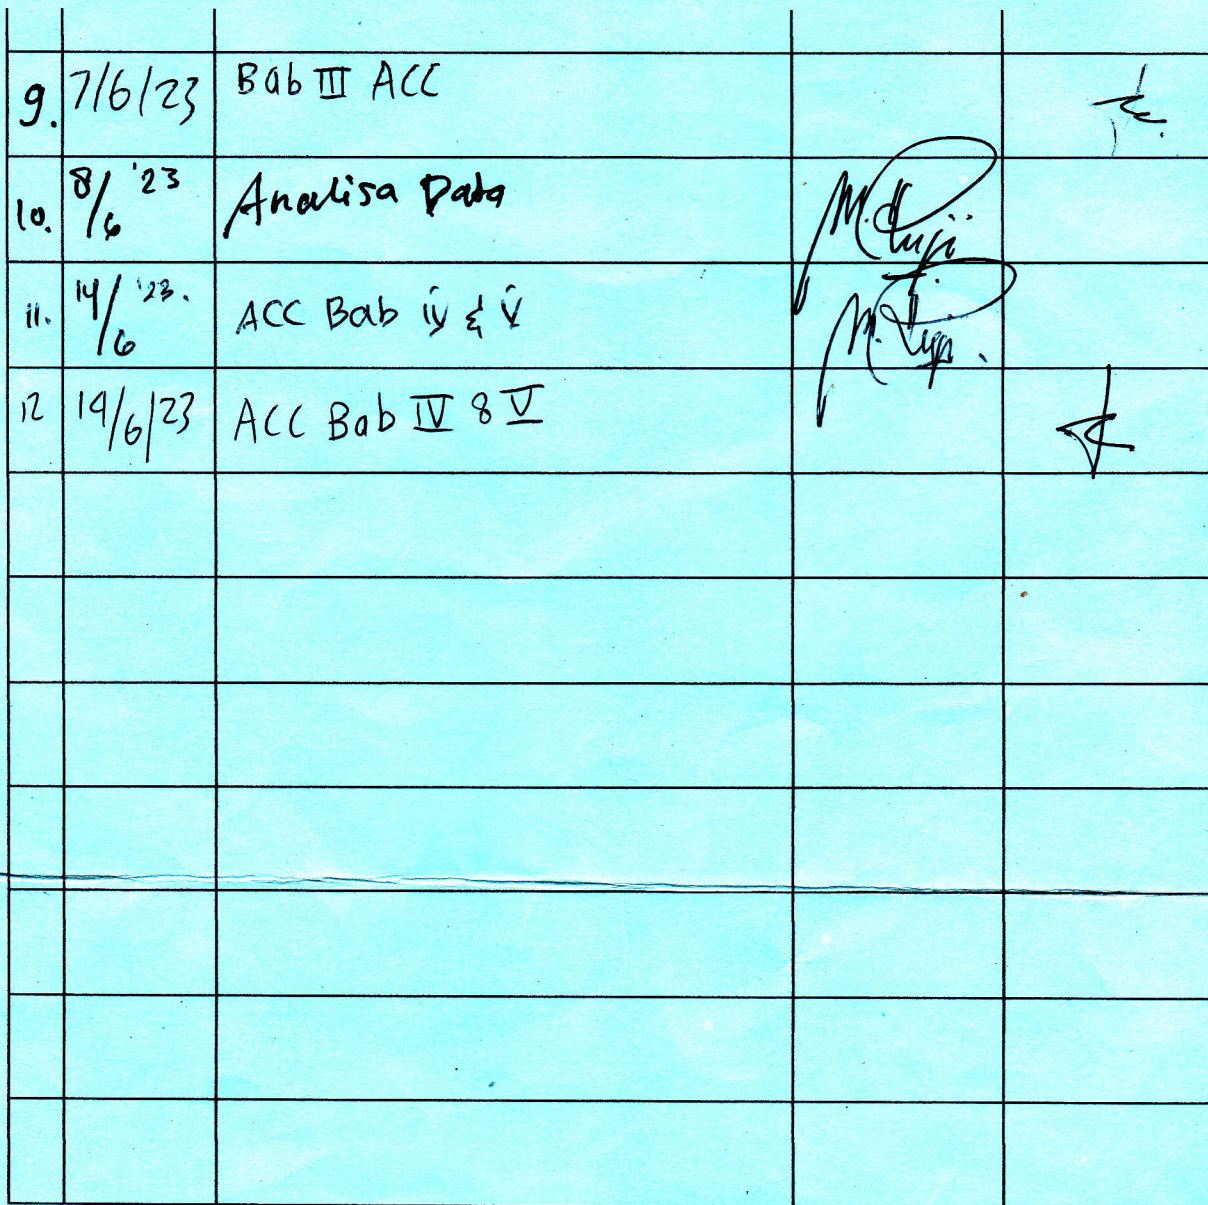 9. 7/6/23 Bab III ACC
10. 8/6 '23 Analisa Data
11. 14/6 '23. ACC Bab iv & v
12 14/6/23 ACC Bab IV & V